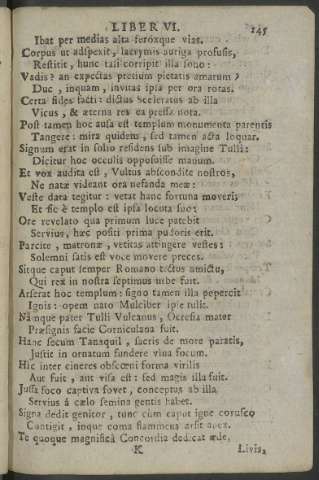 LIBER VI. 145
Ibat per medias alta feróxque vias.
Corpus ut adspexit, lacrymis auriga profusis,
Restitit, hunc tali corripit illa sono:
Vadis? an expectas pretium pietatis amarum?
Duc, inquam, invitas ipsa per ora rotas.
Certa fides facti: dictus Sceleratus ab illa
Vicus, & æterna res ea pressa nota.
Post tamen hoc ausa est templum monumenta parentis
Tangere: mira quidem, sed tamen acta loquar.
Signum erat in solio residens sub imagine Tulli:
Dicitur hoc oculis opposuisse manum.
Et vox audita est, Vultus abscondite nostros,
Ne natæ videant ora nefanda meæ:
Veste data tegitur: vetat hanc fortuna moveri;
Et sic è templo est ipsa locuta suo:
Ore revelato qua primum luce patebit
Servius, hæc positi prima pudoris erit.
Parcite, matronæ, vetitas attingere vestes:
Solemni satis est voce movere preces.
Sitque caput semper Romano tectus amictu,
Qui rex in nostra septimus urbe fuit.
Arserat hoc templum: signo tamen illa pepercit
Ignis: opem nato Mulciber ipse tulit.
Námque pater Tulli Vulcanus, Ocresia mater
Præsignis facie Corniculana fuit.
Hanc secum Tanaquil, sacris de more paratis,
Jussit in ornatum fundere vina focum.
Hîc inter cineres obscœni forma virilis
Aut fuit, aut visa est: sed magis illa fuit.
Jussa foco captiva fovet, conceptus ab illa
Servius á cælo semina gentis habet.
Signa dedit genitor, tunc cùm caput igne corusco
Contigit, inque coma flammeus arsit apex.
Te quoque magnificâ Concordia dedicat æde,
K Livia,